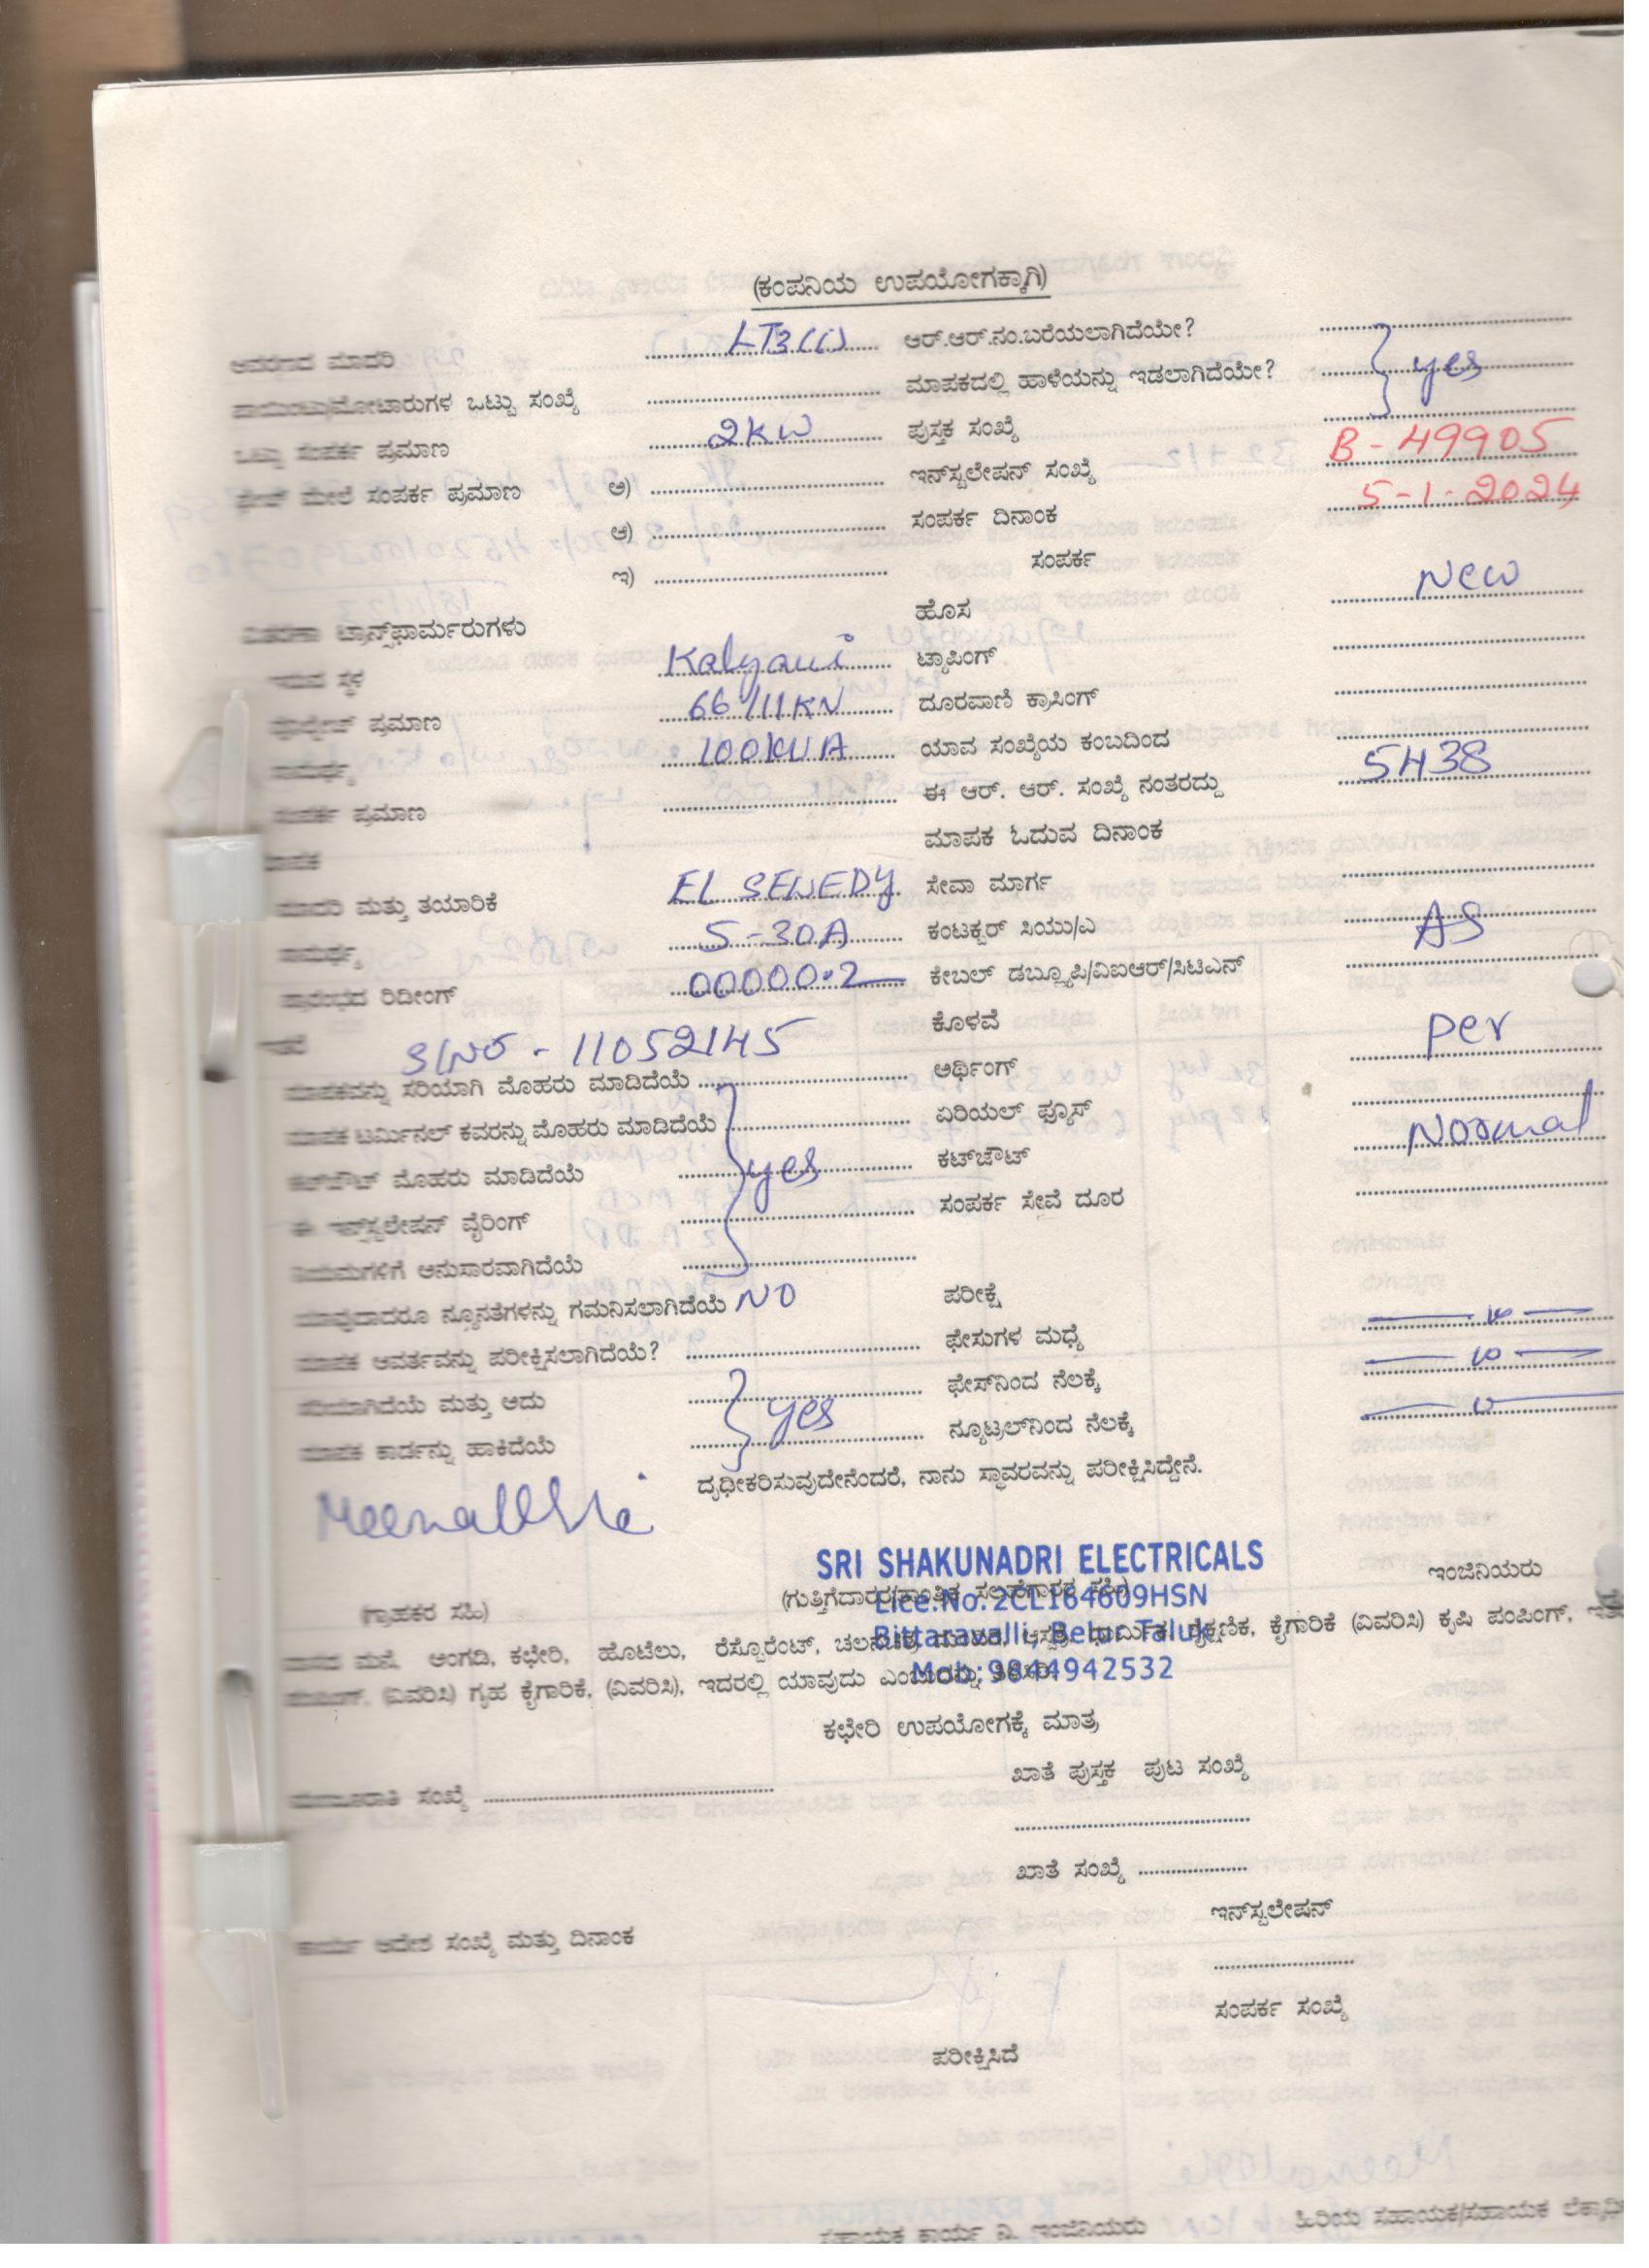 (ಕಂಪನಿಯ ಉಪಯೋಗಕ್ಕಾಗಿ)
ಆವರಣದ ಮಾದರಿ LT3(i) ಆರ್.ಆರ್.ನಂ.ಬರೆಯಲಾಗಿದೆಯೇ?
ಪಾಯಿಂಟ್ಸು/ಮೋಟಾರುಗಳ ಒಟ್ಟು ಸಂಖ್ಯೆ ಮಾಪಕದಲ್ಲಿ ಹಾಳೆಯನ್ನು ಇಡಲಾಗಿದೆಯೇ? yes
ಒಟ್ಟು ಸಂಪರ್ಕ ಪ್ರಮಾಣ 2KW ಪುಸ್ತಕ ಸಂಖ್ಯೆ
ಫೇಜ್ ಮೇಲೆ ಸಂಪರ್ಕ ಪ್ರಮಾಣ ಅ) ಇನ್‌ಸ್ಟಲೇಷನ್ ಸಂಖ್ಯೆ B-49905
ಆ) ಸಂಪರ್ಕ ದಿನಾಂಕ 5-1-2024
ಇ) ಸಂಪರ್ಕ
ವಿತರಣಾ ಟ್ರಾನ್ಸ್‌ಫಾರ್ಮರುಗಳು ಹೊಸ New
ಇರುವ ಸ್ಥಳ Kalyani ಟ್ಯಾಪಿಂಗ್
ವೋಲ್ಟೇಜ್ ಪ್ರಮಾಣ 66/11KV ದೂರವಾಣಿ ಕ್ರಾಸಿಂಗ್
ಸಾಮರ್ಥ್ಯ 100KVA ಯಾವ ಸಂಖ್ಯೆಯ ಕಂಬದಿಂದ
ಸಂಪರ್ಕ ಪ್ರಮಾಣ ಈ ಆರ್. ಆರ್. ಸಂಖ್ಯೆ ನಂತರದ್ದು 5438
ಮಾಪಕ ಮಾಪಕ ಓದುವ ದಿನಾಂಕ
ಮಾದರಿ ಮತ್ತು ತಯಾರಿಕೆ EL SEWEDY ಸೇವಾ ಮಾರ್ಗ
ಸಾಮರ್ಥ್ಯ 5-30A ಕಂಟಕ್ಟರ್ ಸಿಯು/ಎ AS
ಪ್ರಾರಂಭದ ರಿಡೀಂಗ್ 00000.2 ಕೇಬಲ್ ಡಬ್ಲ್ಯೂಪಿ/ವಿಐಆರ್/ಸಿಟಿಎನ್
ಇತರೆ S/No - 11052145 ಕೊಳವೆ
ಮಾಪಕವನ್ನು ಸರಿಯಾಗಿ ಮೊಹರು ಮಾಡಿದೆಯೆ ಅರ್ಥಿಂಗ್ per
ಮಾಪಕ ಟರ್ಮಿನಲ್ ಕವರನ್ನು ಮೊಹರು ಮಾಡಿದೆಯೆ ಏರಿಯಲ್ ಫ್ಯೂಸ್
ಕಟ್‌ಔಟ್ ಮೊಹರು ಮಾಡಿದೆಯೆ yes ಕಟ್‌ಔಟ್ Normal
ಈ ಇನ್‌ಸ್ಟಲೇಷನ್ ವೈರಿಂಗ್ ಸಂಪರ್ಕ ಸೇವೆ ದೂರ
ನಿಯಮಗಳಿಗೆ ಅನುಸಾರವಾಗಿದೆಯೆ
ಯಾವುದಾದರೂ ನ್ಯೂನತೆಗಳನ್ನು ಗಮನಿಸಲಾಗಿದೆಯೆ NO ಪರೀಕ್ಷೆ
ಮಾಪಕ ಆವರ್ತವನ್ನು ಪರೀಕ್ಷಿಸಲಾಗಿದೆಯೆ? ಫೇಸುಗಳ ಮಧ್ಯೆ
ಸರಿಯಾಗಿದೆಯೆ ಮತ್ತು ಅದು yes ಫೇಸ್‌ನಿಂದ ನೆಲಕ್ಕೆ
ಮಾಪಕ ಕಾರ್ಡನ್ನು ಹಾಕಿದೆಯೆ ನ್ಯೂಟ್ರಲ್‌ನಿಂದ ನೆಲಕ್ಕೆ
ದೃಢೀಕರಿಸುವುದೇನೆಂದರೆ, ನಾನು ಸ್ಥಾವರವನ್ನು ಪರೀಕ್ಷಿಸಿದ್ದೇನೆ.
SRI SHAKUNADRI ELECTRICALS
ಇಂಜಿನಿಯರು
(ಗ್ರಾಹಕರ ಸಹಿ) (ಗುತ್ತಿಗೆದಾರರ/ತಾಂತ್ರಿಕ ಸಲಹೆಗಾರರ ಸಹಿ)
Lice.No.2CL164609HSN
ವಾಸದ ಮನೆ, ಅಂಗಡಿ, ಕಛೇರಿ, ಹೊಟೆಲು, ರೆಸ್ಟೊರೆಂಟ್, ಶೈಕ್ಷಣಿಕ, ಕೈಗಾರಿಕೆ (ವಿವರಿಸಿ) ಕೃಷಿ ಪಂಪಿಂಗ್,
Bittaravalli, Belur Taluk
(ವಿವರಿಸಿ) ಗೃಹ ಕೈಗಾರಿಕೆ, (ವಿವರಿಸಿ), ಇದರಲ್ಲಿ ಯಾವುದು ಎಂಬುದನ್ನು
Mob:9844942532
ಕಛೇರಿ ಉಪಯೋಗಕ್ಕೆ ಮಾತ್ರ
ಖಾತೆ ಪುಸ್ತಕ ಪುಟ ಸಂಖ್ಯೆ
ಮಂಜೂರಾತಿ ಸಂಖ್ಯೆ
ಖಾತೆ ಸಂಖ್ಯೆ
ಇನ್‌ಸ್ಟಲೇಷನ್
ಕಾರ್ಯ ಆದೇಶ ಸಂಖ್ಯೆ ಮತ್ತು ದಿನಾಂಕ
ಸಂಪರ್ಕ ಸಂಖ್ಯೆ
ಪರೀಕ್ಷಿಸಿದೆ
ಸಹಾಯಕ ಕಾರ್ಯ ನಿ. ಇಂಜಿನಿಯರು ಹಿರಿಯ ಸಹಾಯಕ/ಸಹಾಯಕ